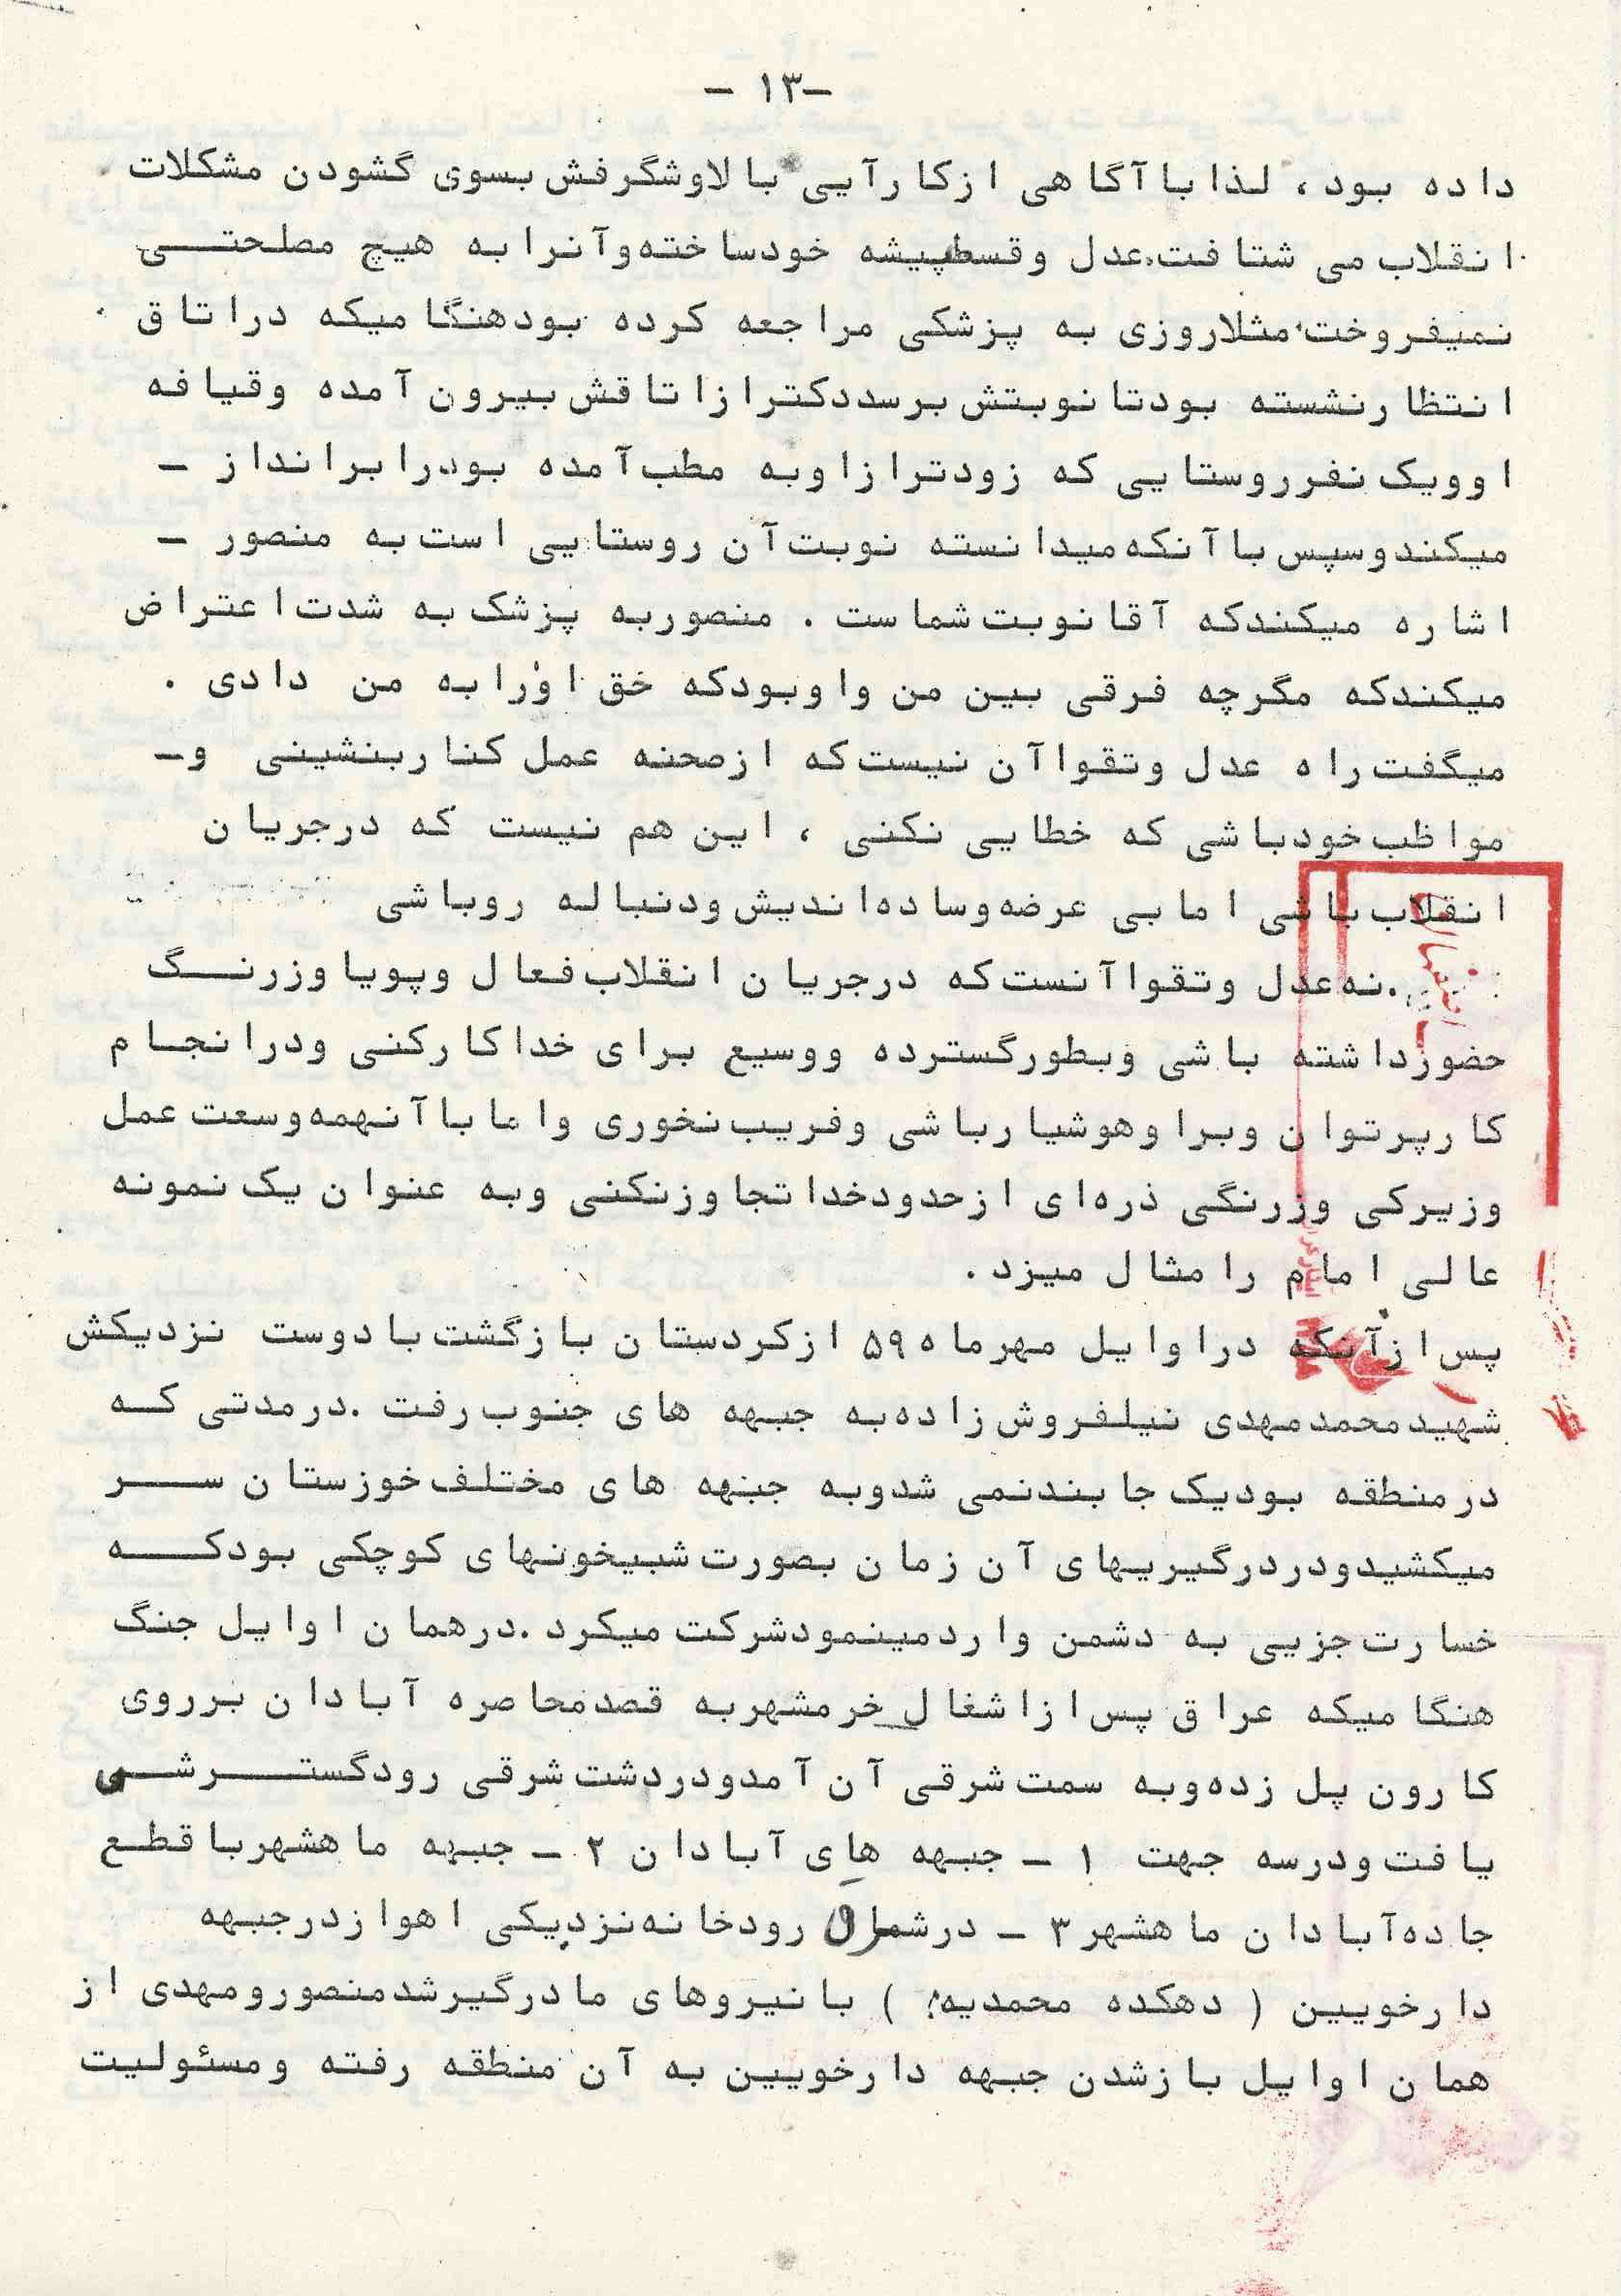 -۱۳ -
داده بود، لذا با آگاهی از کارآیی بالاوشگرفش بسوی گشودن مشکلات
انقلاب می شتافت.عدل وقسط پیشه خودساخته وآنرا به هیچ مصلحتی
نمیفروخت مثلاروزی به پزشکی مراجعه کرده بودهنگا میکه دراتاق
انتظارنشسته بودتا نوبتش برسددکترازاتاقش بیرون آمده وقیافه
اوویک نفرروستایی که زودترازاوبه مطب آمده بودرابرانداز -
میکندوسپس باآنکه میدانسته نوبت آن روستایی است به منصور -
اشاره میکندکه آقانوبت شماست . منصوربه پزشک به شدت اعتراض
میکندکه مگرچه فرقی بین من واوبودکه حق اورابه من دادی .
میگفت راه عدل وتقواآن نیست که ازصحنه عمل کناربنشینی و-
مواظب خودباشی که خطایی نکنی ، این هم نیست که درجریان
انقلاب باشی امابی عرضه وساده اندیش ودنباله روباشی
.نه عدل وتقواآنست که درجریان انقلاب فعال وپویا وزرنگ
حضورداشته باشی وبطورگسترده ووسیع برای خداکارکنی ودرانجام
کارپرتوان وبرا وهوشیارباشی وفریب نخوری واما باآنهمه وسعت عمل
وزیرکی وزرنگی ذره ای ازحدودخداتجاوزنکنی وبه عنوان یک نمونه
عالی امام را مثال میزد .
پس ازآنکه دراوایل مهرماه ۵۹ ازکردستان بازگشت بادوست نزدیکش
شهیدمحمدمهدی نیلفروش زاده به جبهه های جنوب رفت .درمدتی که
درمنطقه بودیک جا بندنمی شدوبه جبهه های مختلف خوزستان سر
میکشیدودردرگیریهای آن زمان بصورت شبیخونهای کوچکی بودکه
خسارت جزیی به دشمن واردمینمودشرکت میکرد .درهمان اوایل جنگ
هنگامیکه عراق پس ازاشغال خرمشهربه قصدمحاصره آبادان برروی
کارون پل زده وبه سمت شرقی آن آمدودردشت شرقی رودگسترشی
یافت ودرسه جهت ۱ - جبهه های آبادان ۲ - جبهه ماهشهرباقطع
جاده آبادان ماهشهر ۳ - درشمال رودخانه نزدیکی اهوازدرجبهه
دارخویین ( دهکده محمدیه ) بانیروهای مادرگیرشدمنصورومهدی از
همان اوایل بازشدن جبهه دارخویین به آن منطقه رفته ومسئولیت